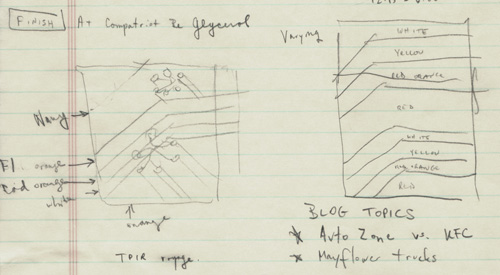 FINISH
A+ Compatriot Re Glycerol
Varying
WHITE
YELLOW
RED ORANGE
RED
WHITE
YELLOW
RED ORANGE
RED
Fl. orange
Cad orange
white
orange
BLOG TOPICS
* Auto Zone vs. KFC
* Mayflower trucks